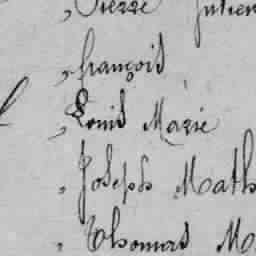 , Pierre Julien
, françois
, Louis Marie
, Joseph Math
, Thomas M